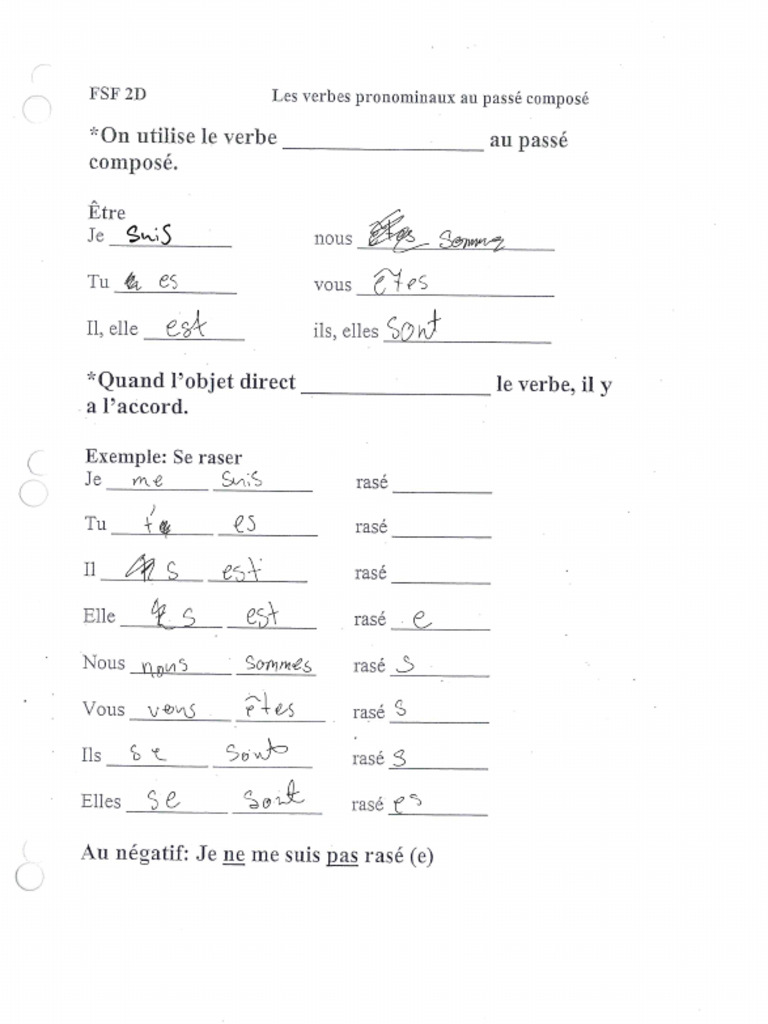 FSF 2D Les verbes pronominaux au passé composé
*On utilise le verbe ____________ au passé
composé.
Être
Je suis nous sommes
Tu es vous êtes
Il, elle est ils, elles sont
*Quand l'objet direct ____________ le verbe, il y
a l'accord.
Exemple: Se raser
Je me suis rasé ______
Tu t' es rasé ______
Il s est rasé ______
Elle s est rasé e
Nous nous sommes rasé s
Vous vous êtes rasé s
Ils se sont rasé s
Elles se sont rasé es
Au négatif: Je ne me suis pas rasé (e)